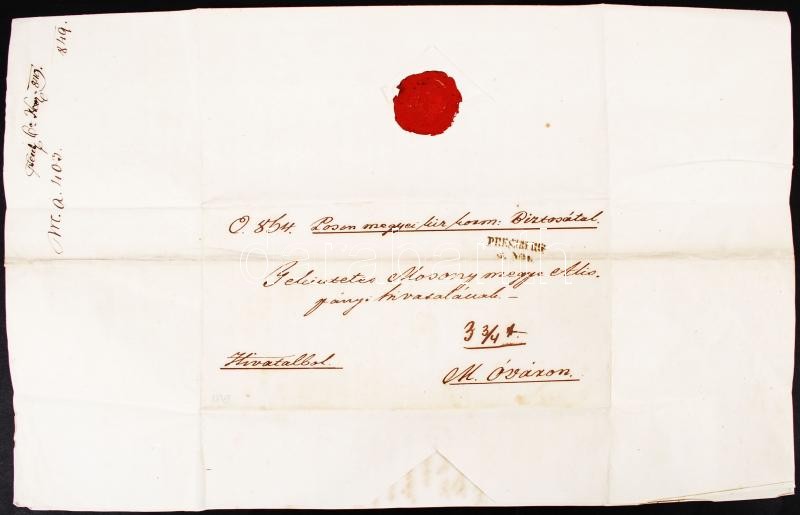 849.
M. A. 403.
O. 864. Poson megyei kir korm: Biztosátol.
PRESBURG
Tekintetes Mosony megye Alis-
pányi hivatalának –
3 3/4 t.
Hivatalbol.
M. Óváron.